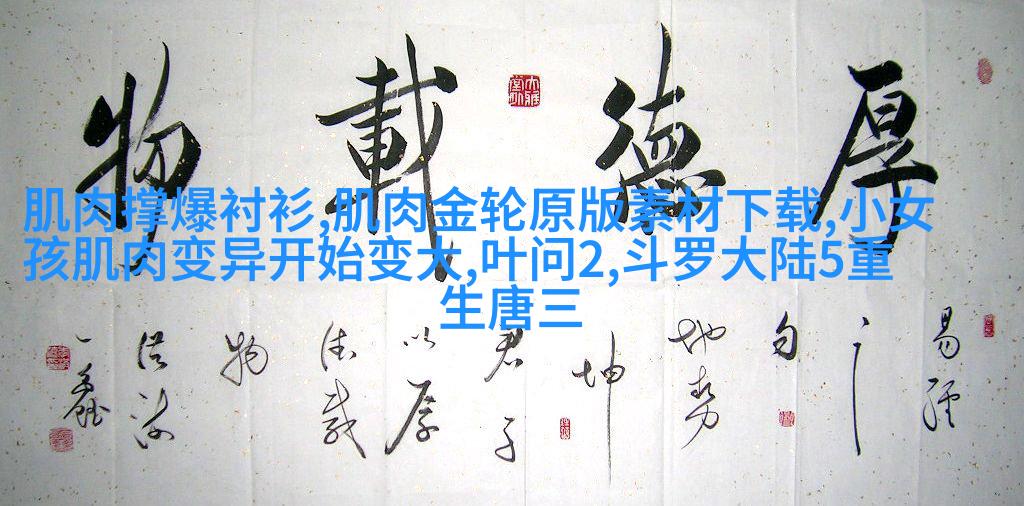 厚德載物
肌肉撑爆衬衫,肌肉金轮原版素材下载,小女
孩肌肉变异开始变大,叶问2,斗罗大陆5重
生唐三
易經
之
句
地勢
坤
君子
以厚
德載
物